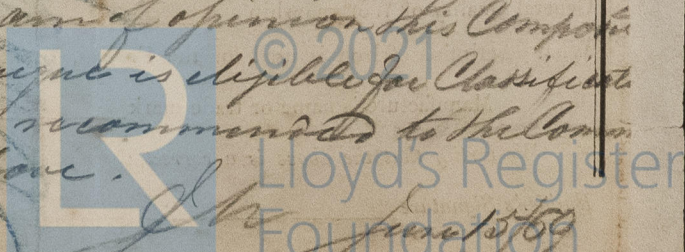 am of opinion this Composite
is eligible for Classificat
recommended to the Comm
above.
June 15/69
© 2021
LR
Lloyd's Register
Foundation